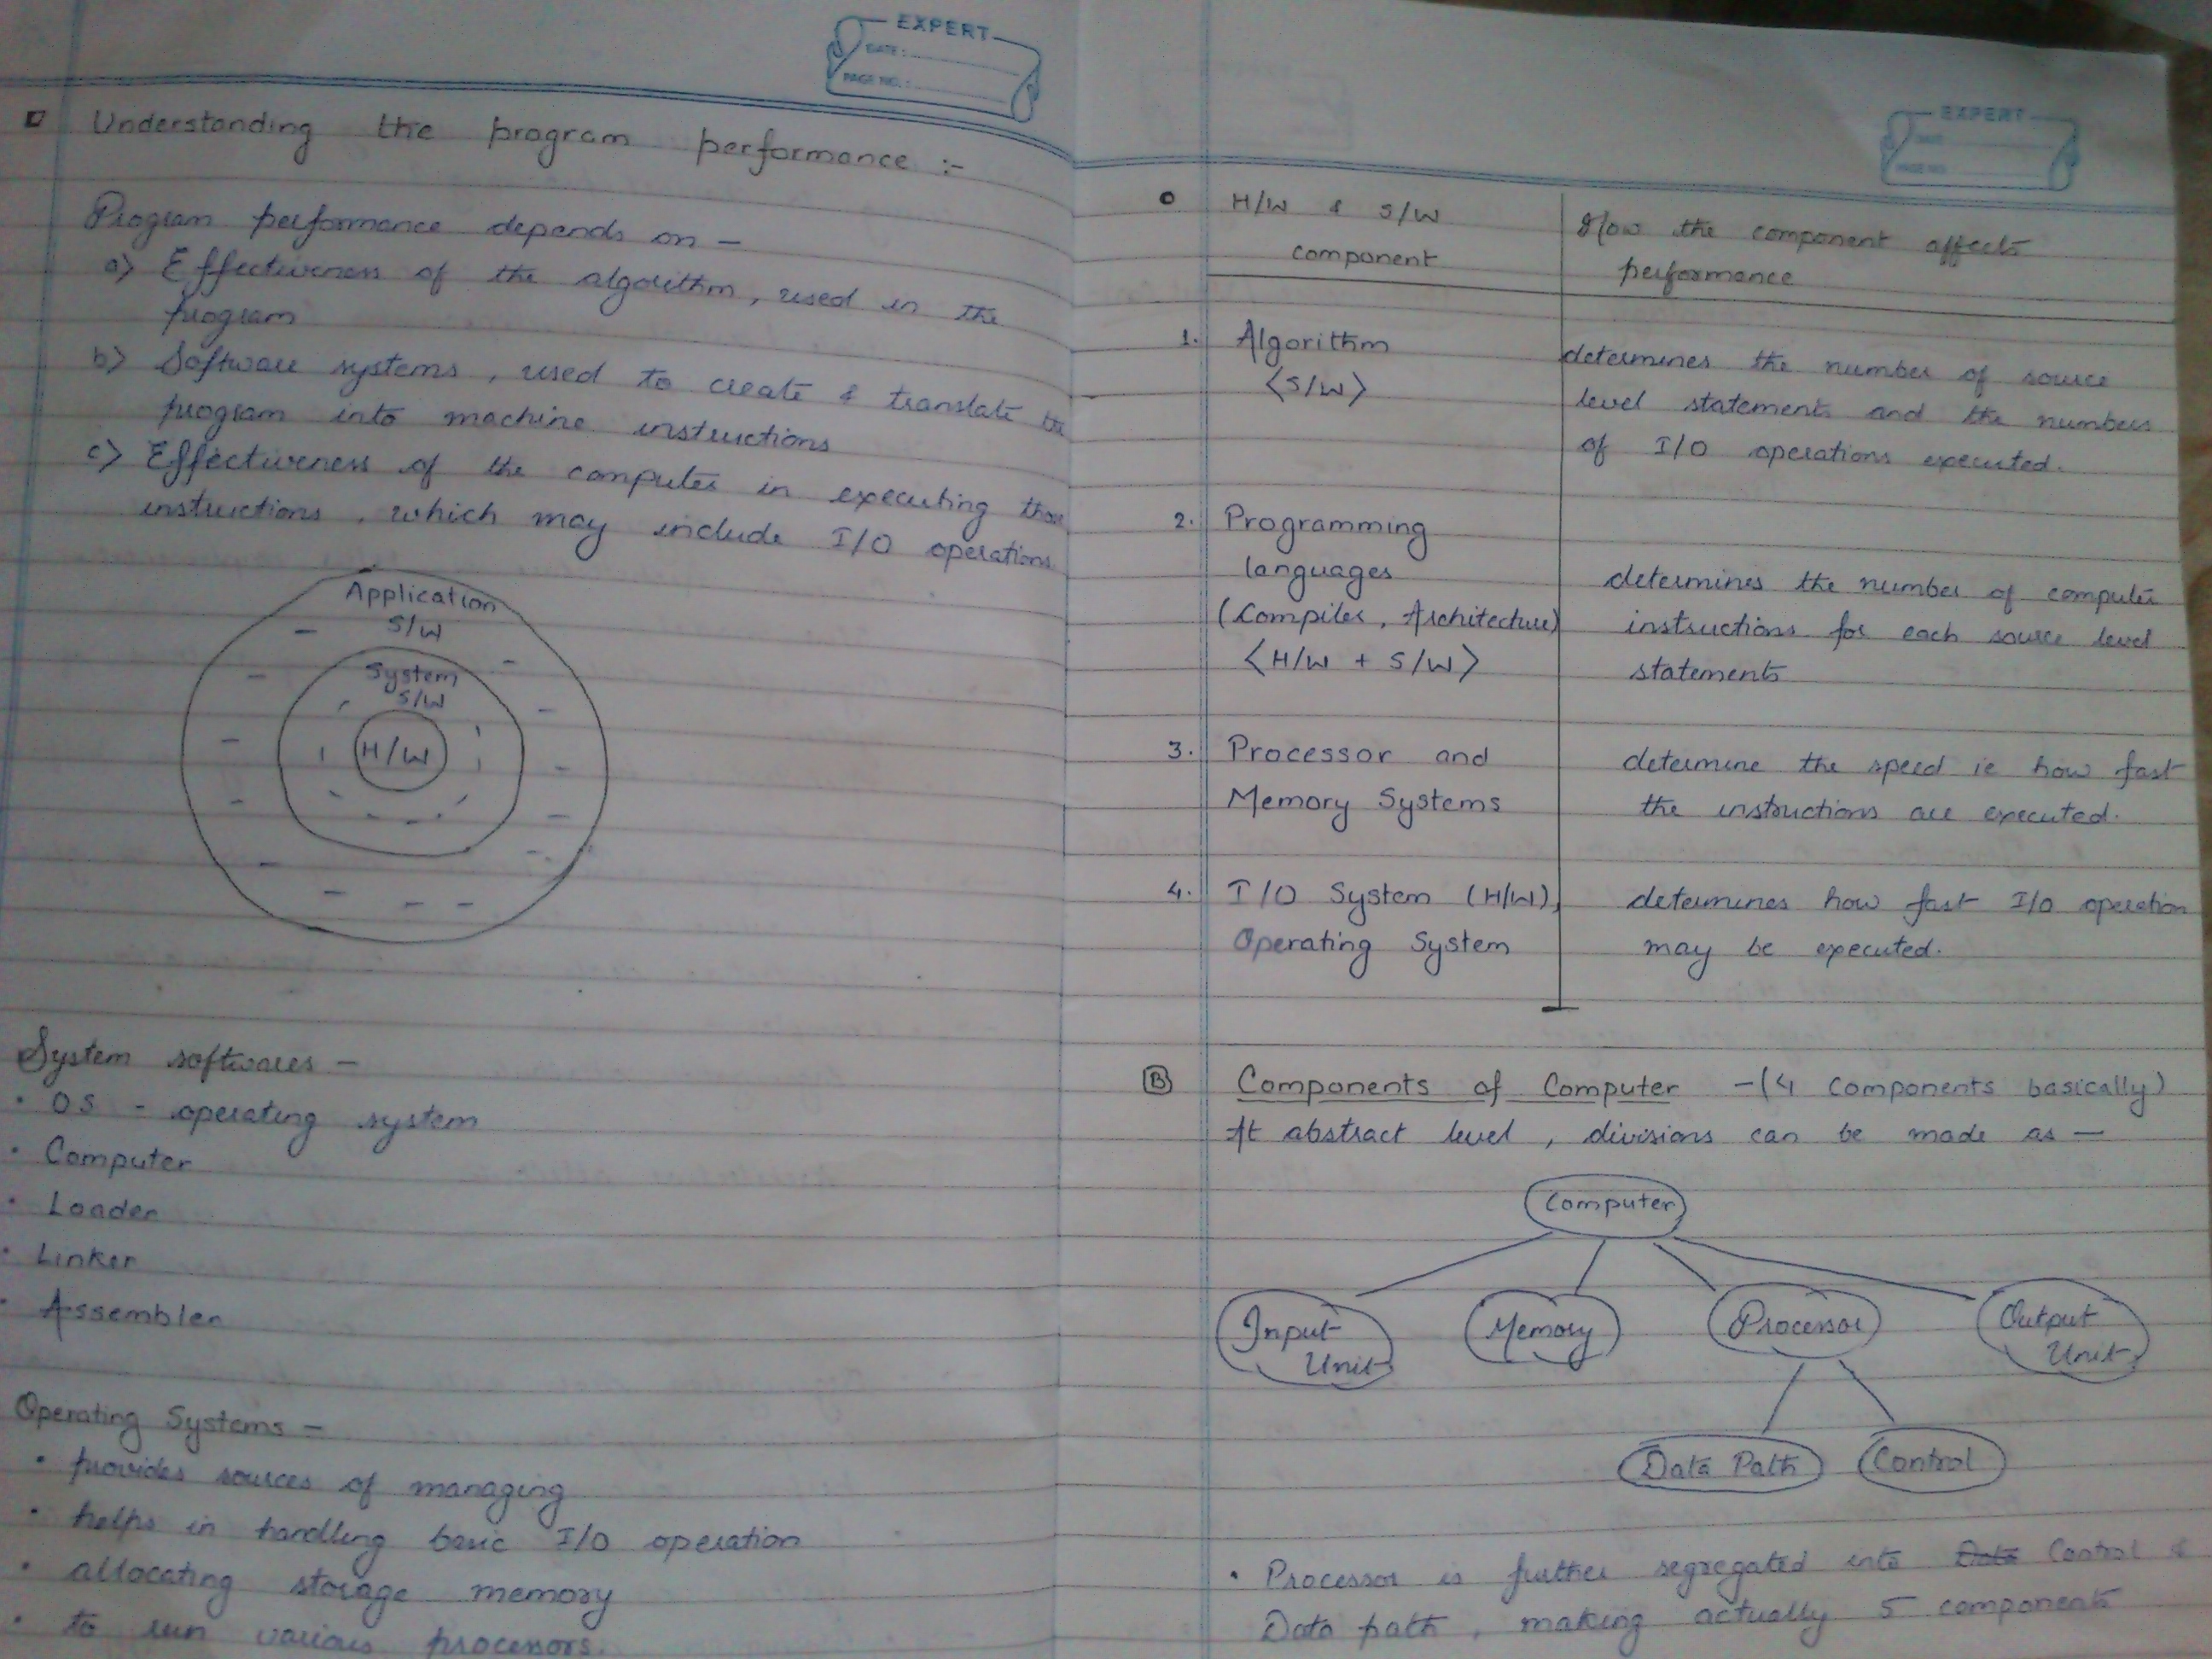 EXPERT
DATE:
PAGE NO.:
Understanding the program performance :-
Program performance depends on -
a) Effectiveness of the algorithm, used in the
program
b) Software systems, used to create & translate the
program into machine instructions
c) Effectiveness of the computer in executing those
instructions, which may include I/O operations
Application
S/W
System
S/W
H/W
System softwares -
• OS - operating system
• Computer
• Loader
• Linker
• Assembler
Operating Systems -
• provides sources of managing
• helps in handling basic I/O operation
• allocating storage memory
• to run various processors.
EXPERT
DATE
PAGE NO.
H/W & S/W
component
How the component affects
performance
1. Algorithm
<S/W>
determines the number of source
level statements and the numbers
of I/O operations executed.
2. Programming
languages
(Compiler, Architecture)
<H/W + S/W>
determines the number of computer
instructions for each source level
statements
3. Processor and
Memory Systems
determine the speed ie how fast
the instructions are executed.
4. I/O System (H/W),
Operating System
determines how fast I/O operation
may be executed.
B Components of Computer -(4 components basically)
At abstract level, divisions can be made as -
Computer
Input
Unit
Memory
Processor
Output
Unit
Data Path
Control
• Processor is further segregated into Data Control &
Data path, making actually 5 components